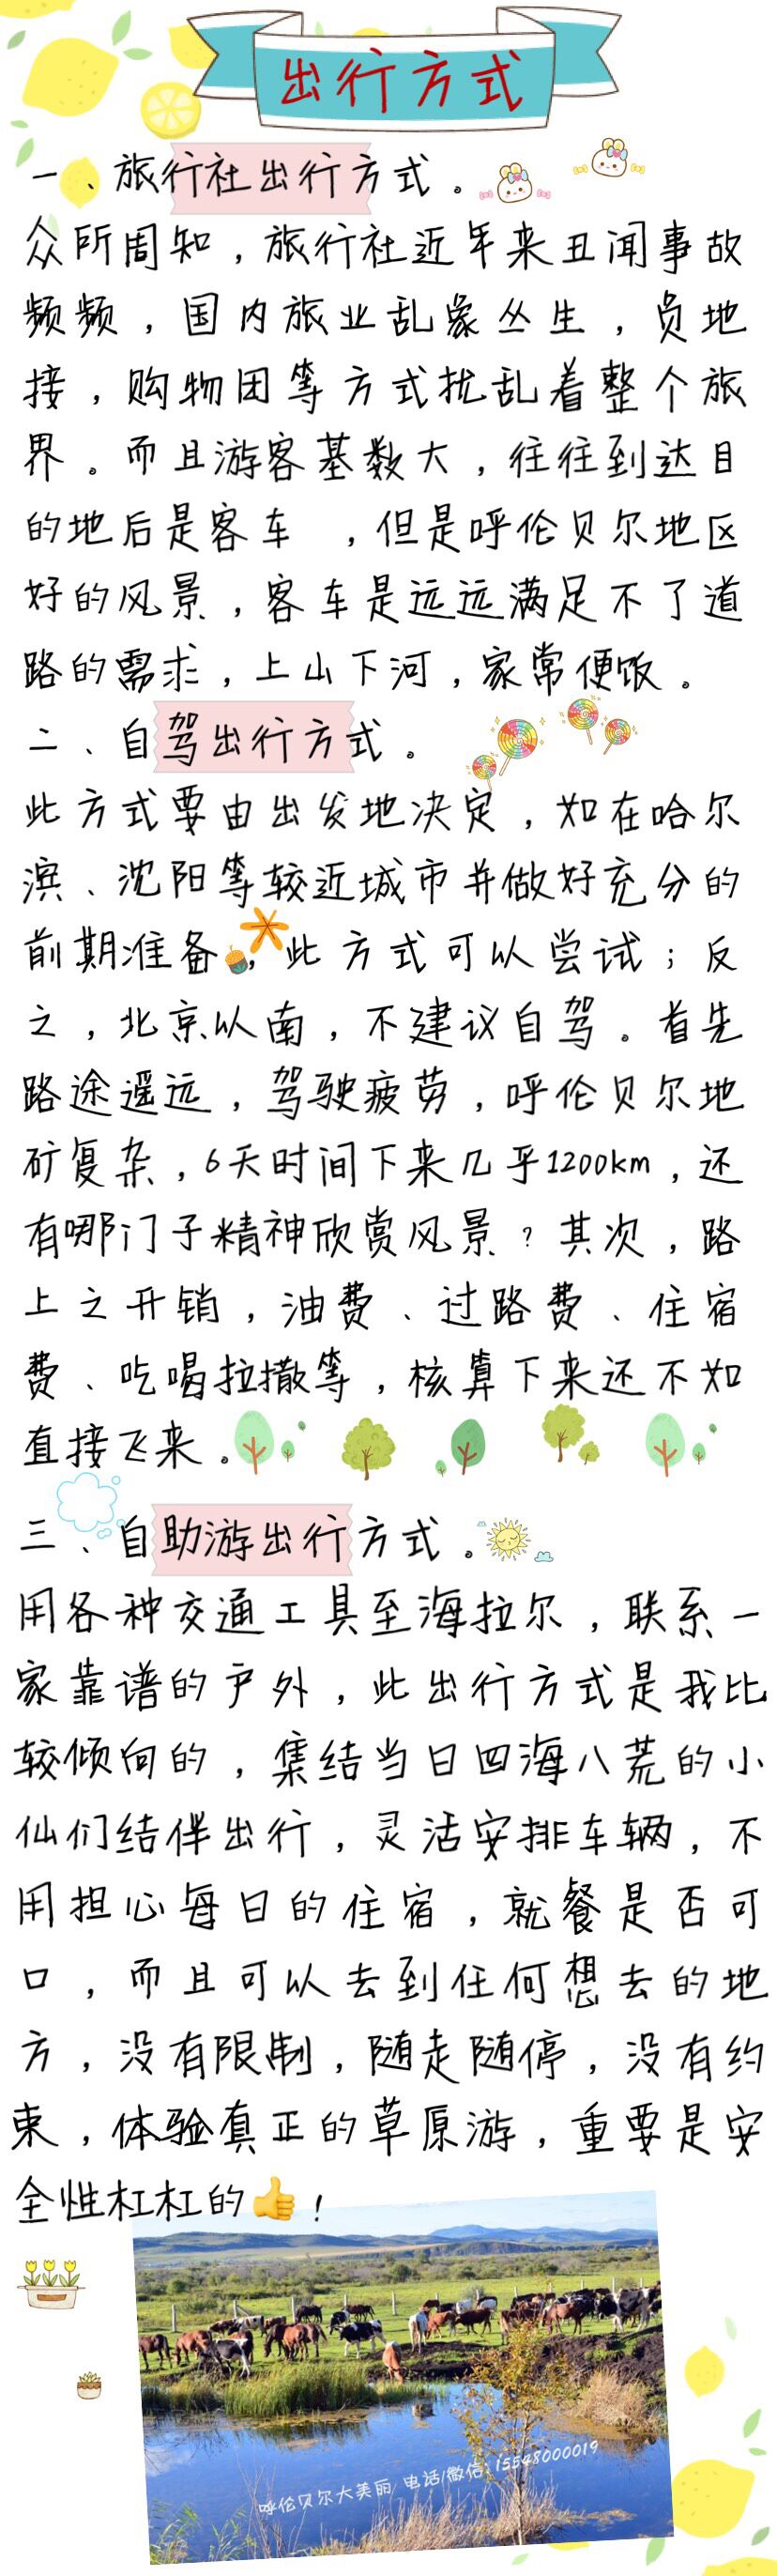 出行方式
一、旅行社出行方式。
众所周知，旅行社近年来丑闻事故
频频，国内旅业乱象丛生，负地
接，购物团等方式扰乱着整个旅
界。而且游客基数大，往往到达目
的地后是客车 ，但是呼伦贝尔地区
好的风景，客车是远远满足不了道
路的需求，上山下河，家常便饭。
二、自驾出行方式。
此方式要由出发地决定，如在哈尔
滨、沈阳等较近城市并做好充分的
前期准备，此方式可以尝试；反
之，北京以南，不建议自驾。首先
路途遥远，驾驶疲劳，呼伦贝尔地
矿复杂，6天时间下来几乎1200km，还
有哪门子精神欣赏风景？其次，路
上之开销，油费、过路费、住宿
费、吃喝拉撒等，核算下来还不如
直接飞来。
三、自助游出行方式。
用各种交通工具至海拉尔，联系一
家靠谱的户外，此出行方式是我比
较倾向的，集结当日四海八荒的小
仙们结伴出行，灵活安排车辆，不
用担心每日的住宿，就餐是否可
口，而且可以去到任何想去的地
方，没有限制，随走随停，没有约
束，体验真正的草原游，重要是安
全性杠杠的👍！
呼伦贝尔大美丽/电话/微信:15548000019